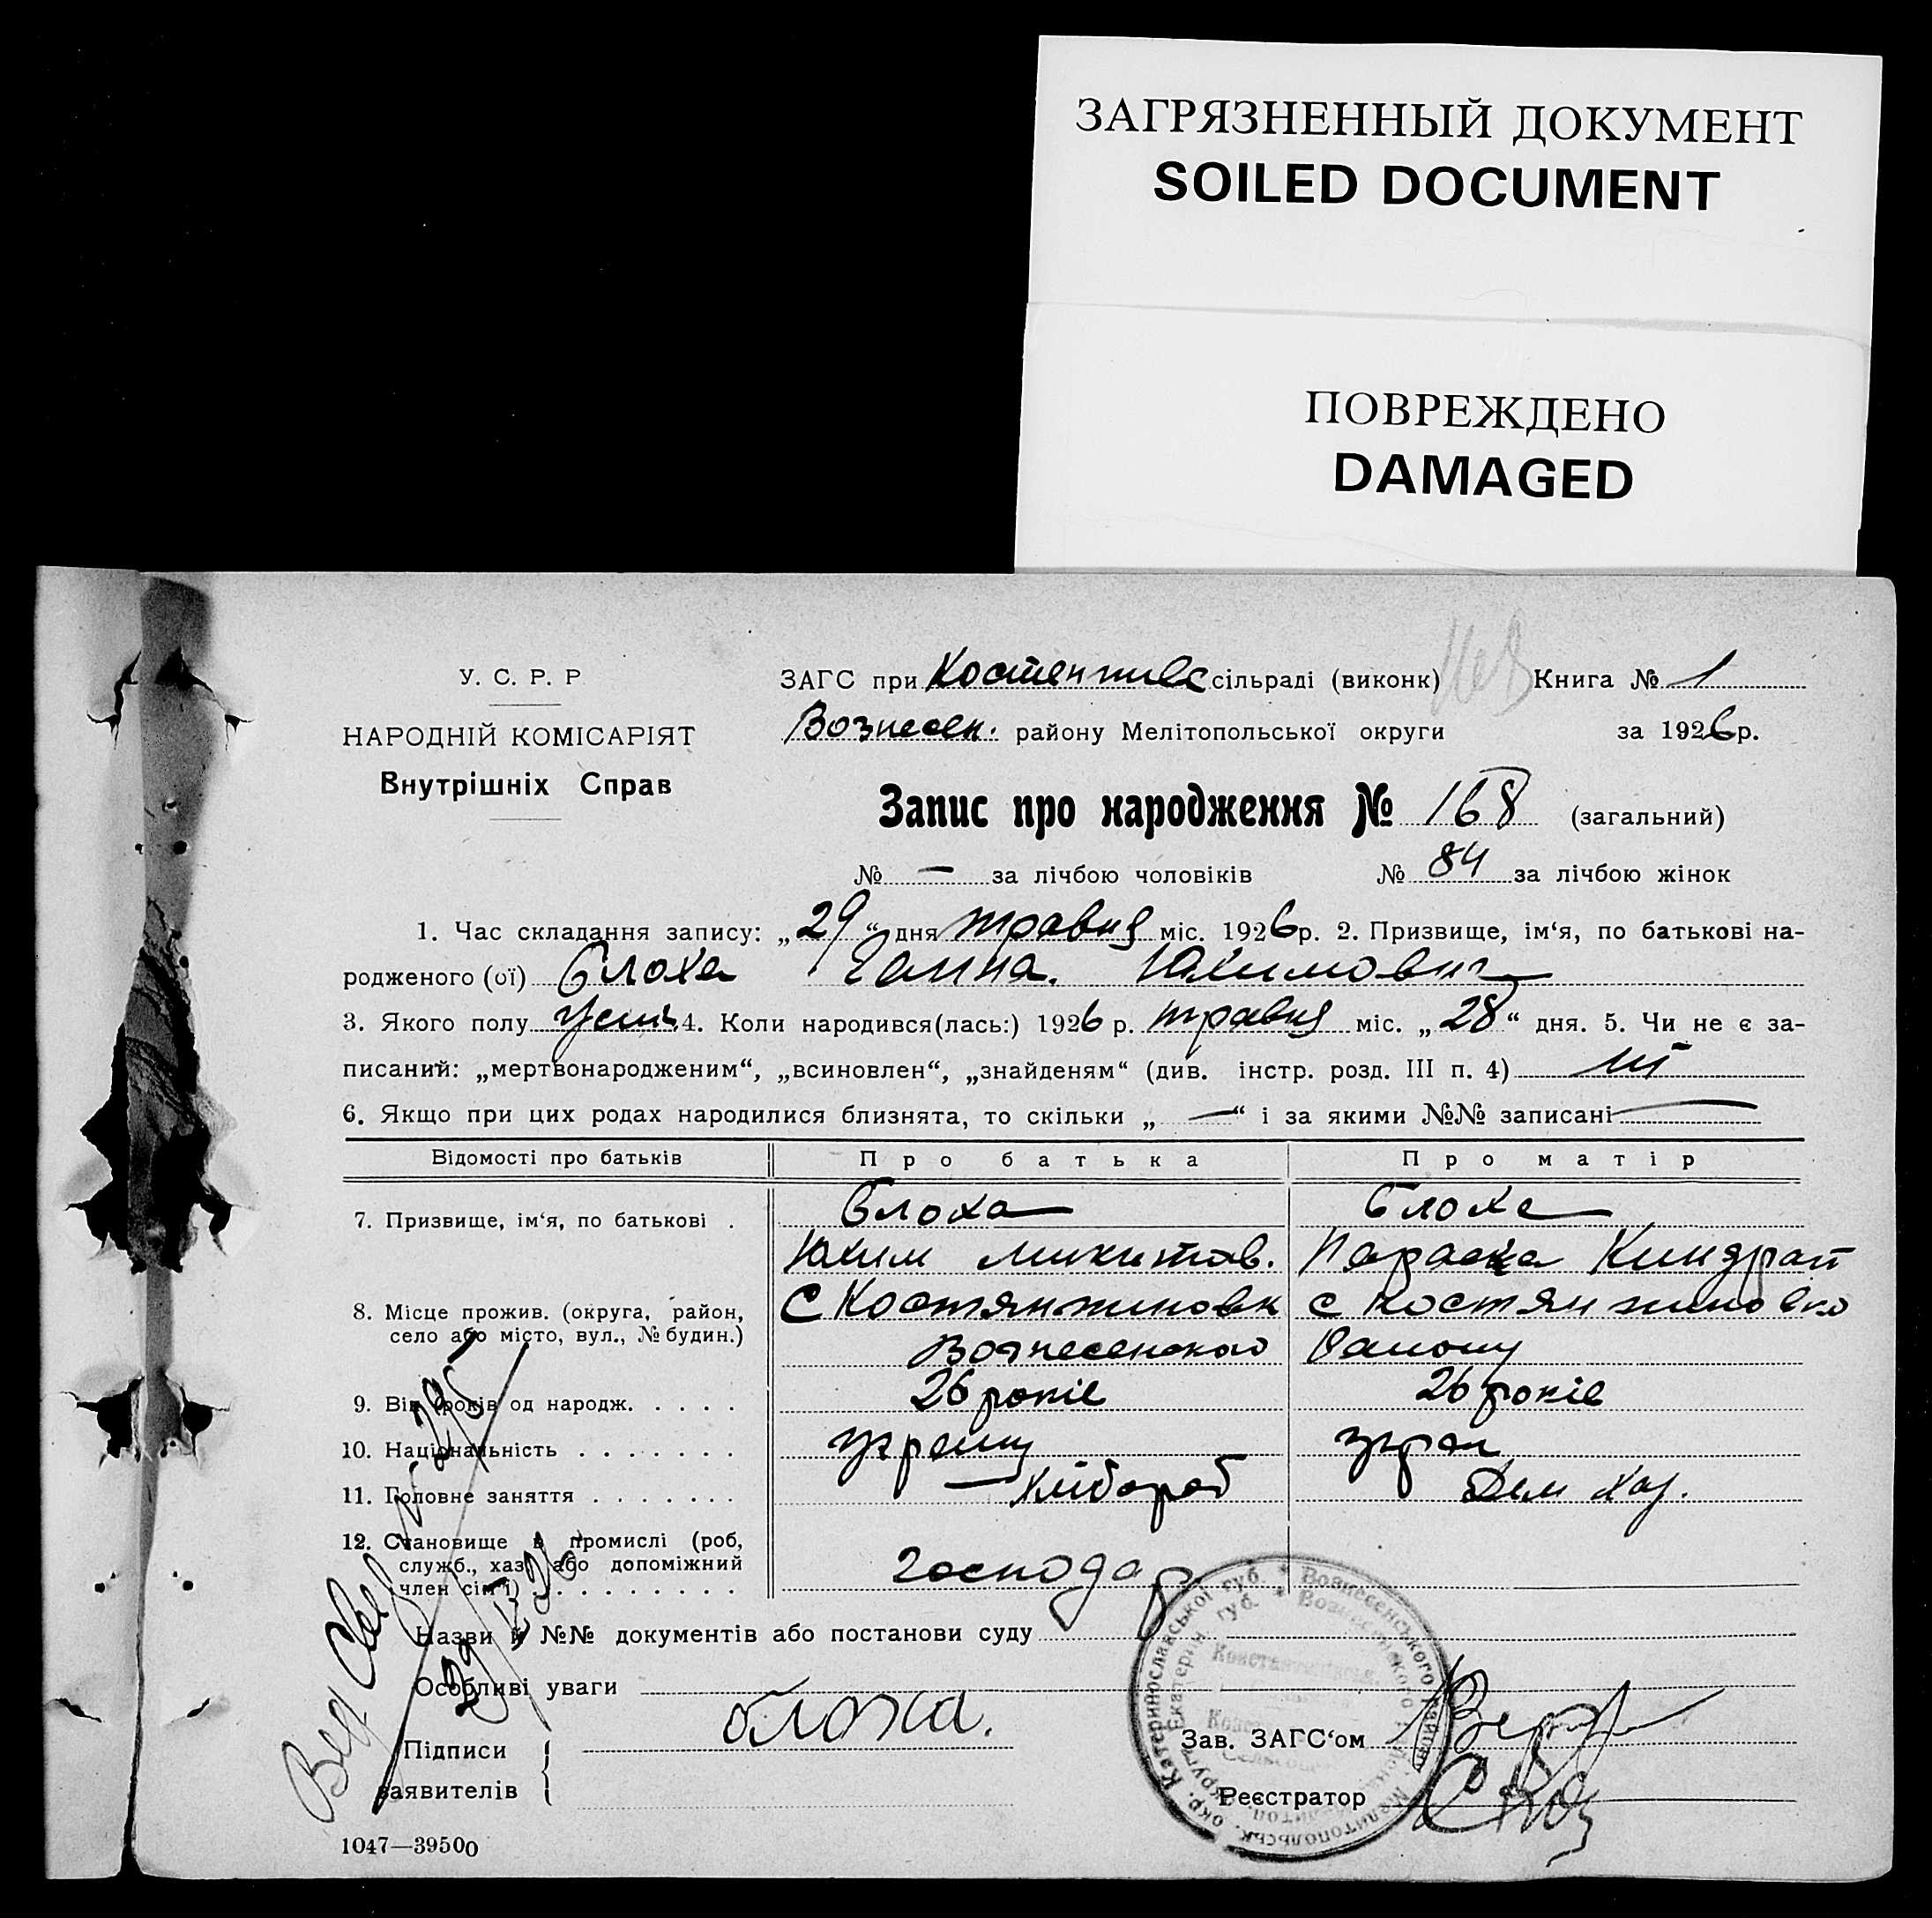 ЗАГРЯЗНЕННЫЙ ДОКУМЕНТ
SOILED DOCUMENT
ПОВРЕЖДЕНО
DAMAGED
У. С. Р. Р
НАРОДНІЙ КОМІСАРІЯТ
Внутрішніх Справ
ЗАГС при сільраді (виконк) Книга № 1
Вознесен. району Мелітопольської округи за 1926 р.
Запис про народження № 168 (загальний)
№ — за лічбою чоловіків № 84 за лічбою жінок
1. Час складання запису: „29“ дня травня міс. 1926 р. 2. Призвище, ім‘я, по батькові на-
родженого (ої) Блоха Ганна.
3. Якого полу 4. Коли народився(лась:) 1926 р. травня міс. „28“ дня. 5. Чи не є за-
писаний: „мертвонародженим“, „всиновлен“, „знайденям“ (див. інстр. розд. III п. 4)
6. Якщо при цих родах народилися близнята, то скільки „—“ і за якими №№ записані —
Відомості про батьків Про батька Про матір
7. Призвище, ім‘я, по батькові . Блоха Блоха
Юхим микитов. Параска Киндрат
8. Місце прожив. (округа, район, С Костянтиновк с костянтиновко
село або місто, вул., № будин.) Вознесенского
9. Віп років од народж. . . . . 26 років 26 років
10. Національність . . . . . . .
11. Головне заняття . . . . . . . — хлібороб Дом хаз.
12. Становище в промислі (роб,
служб., хаз. або допоміжний господар
член сім‘ї) . . . . . . . . .
Назви й №№ документів або постанови суду
Особливі уваги
Підписи
заявителів
блоха.
Зав. ЗАГС‘ом
Реєстратор
1047—39500